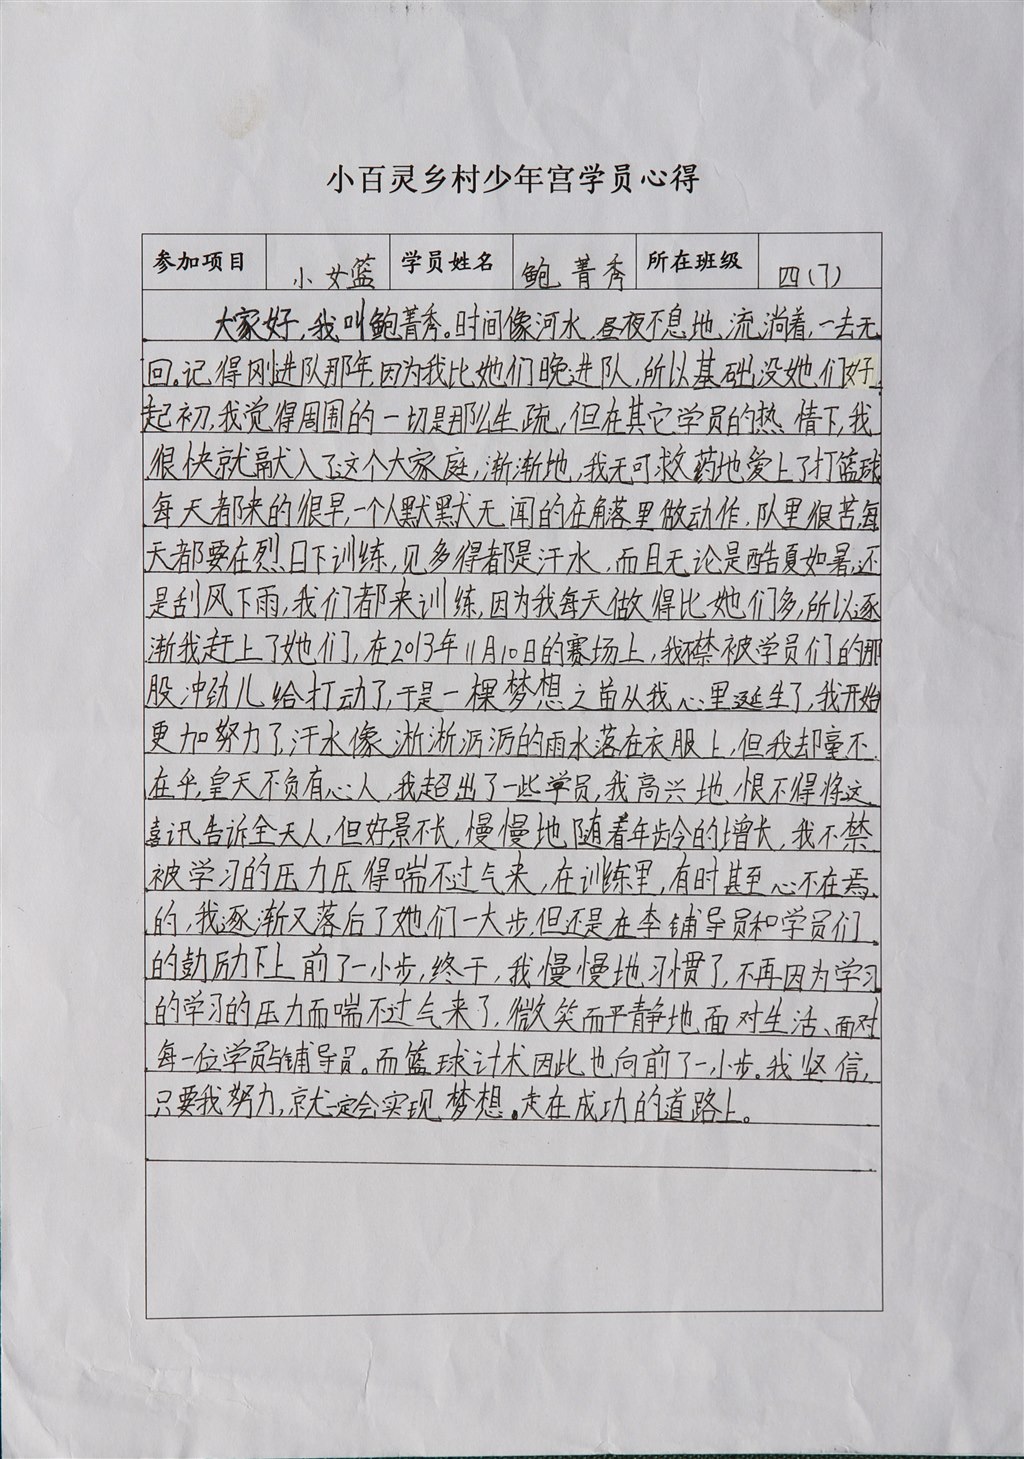 小百灵乡村少年宫学员心得
参加项目 小女篮 学员姓名 鲍菁秀 所在班级 四(7)
大家好,我叫鲍菁秀。时间像河水,昼夜不息地,流淌着,一去无
回。记得刚进队那年,因为我比她们晚进队,所以基础没她们好
起初,我觉得周围的一切是那么生疏,但在其它学员的热情下,我
很快就融入了这个大家庭,渐渐地,我无可救药地爱上了打篮球
每天都来的很早,一个人默默无闻的在角落里做动作,队里很苦,每
天都要在烈日下训练,见多得都是汗水,而且无论是酷夏如暑,还
是刮风下雨,我们都来训练,因为我每天做得比她们多,所以逐
渐我赶上了她们,在2013年11月10日的赛场上,我不禁被学员们的那
股冲劲儿给打动了,于是一棵梦想之苗从我心里延生了,我开始
更加努力了,汗水像淅淅沥沥的雨水落在衣服上,但我却毫不
在乎,皇天不负有心人,我超出了一些学员,我高兴地恨不得将这
喜讯告诉全天人,但好景不长,慢慢地随着年龄的增长,我不禁
被学习的压力压得喘不过气来,在训练里,有时甚至心不在焉
的,我逐渐又落后了她们一大步,但还是在李辅导员和学员们
的鼓励下上前了一小步,终于,我慢慢地习惯了,不再因为学习
的学习的压力而喘不过气来了,微笑而平静地面对生活、面对
每一位学员与辅导员。而篮球计术因此也向前了一小步。我坚信,
只要我努力,就一定会实现梦想。走在成功的道路上。